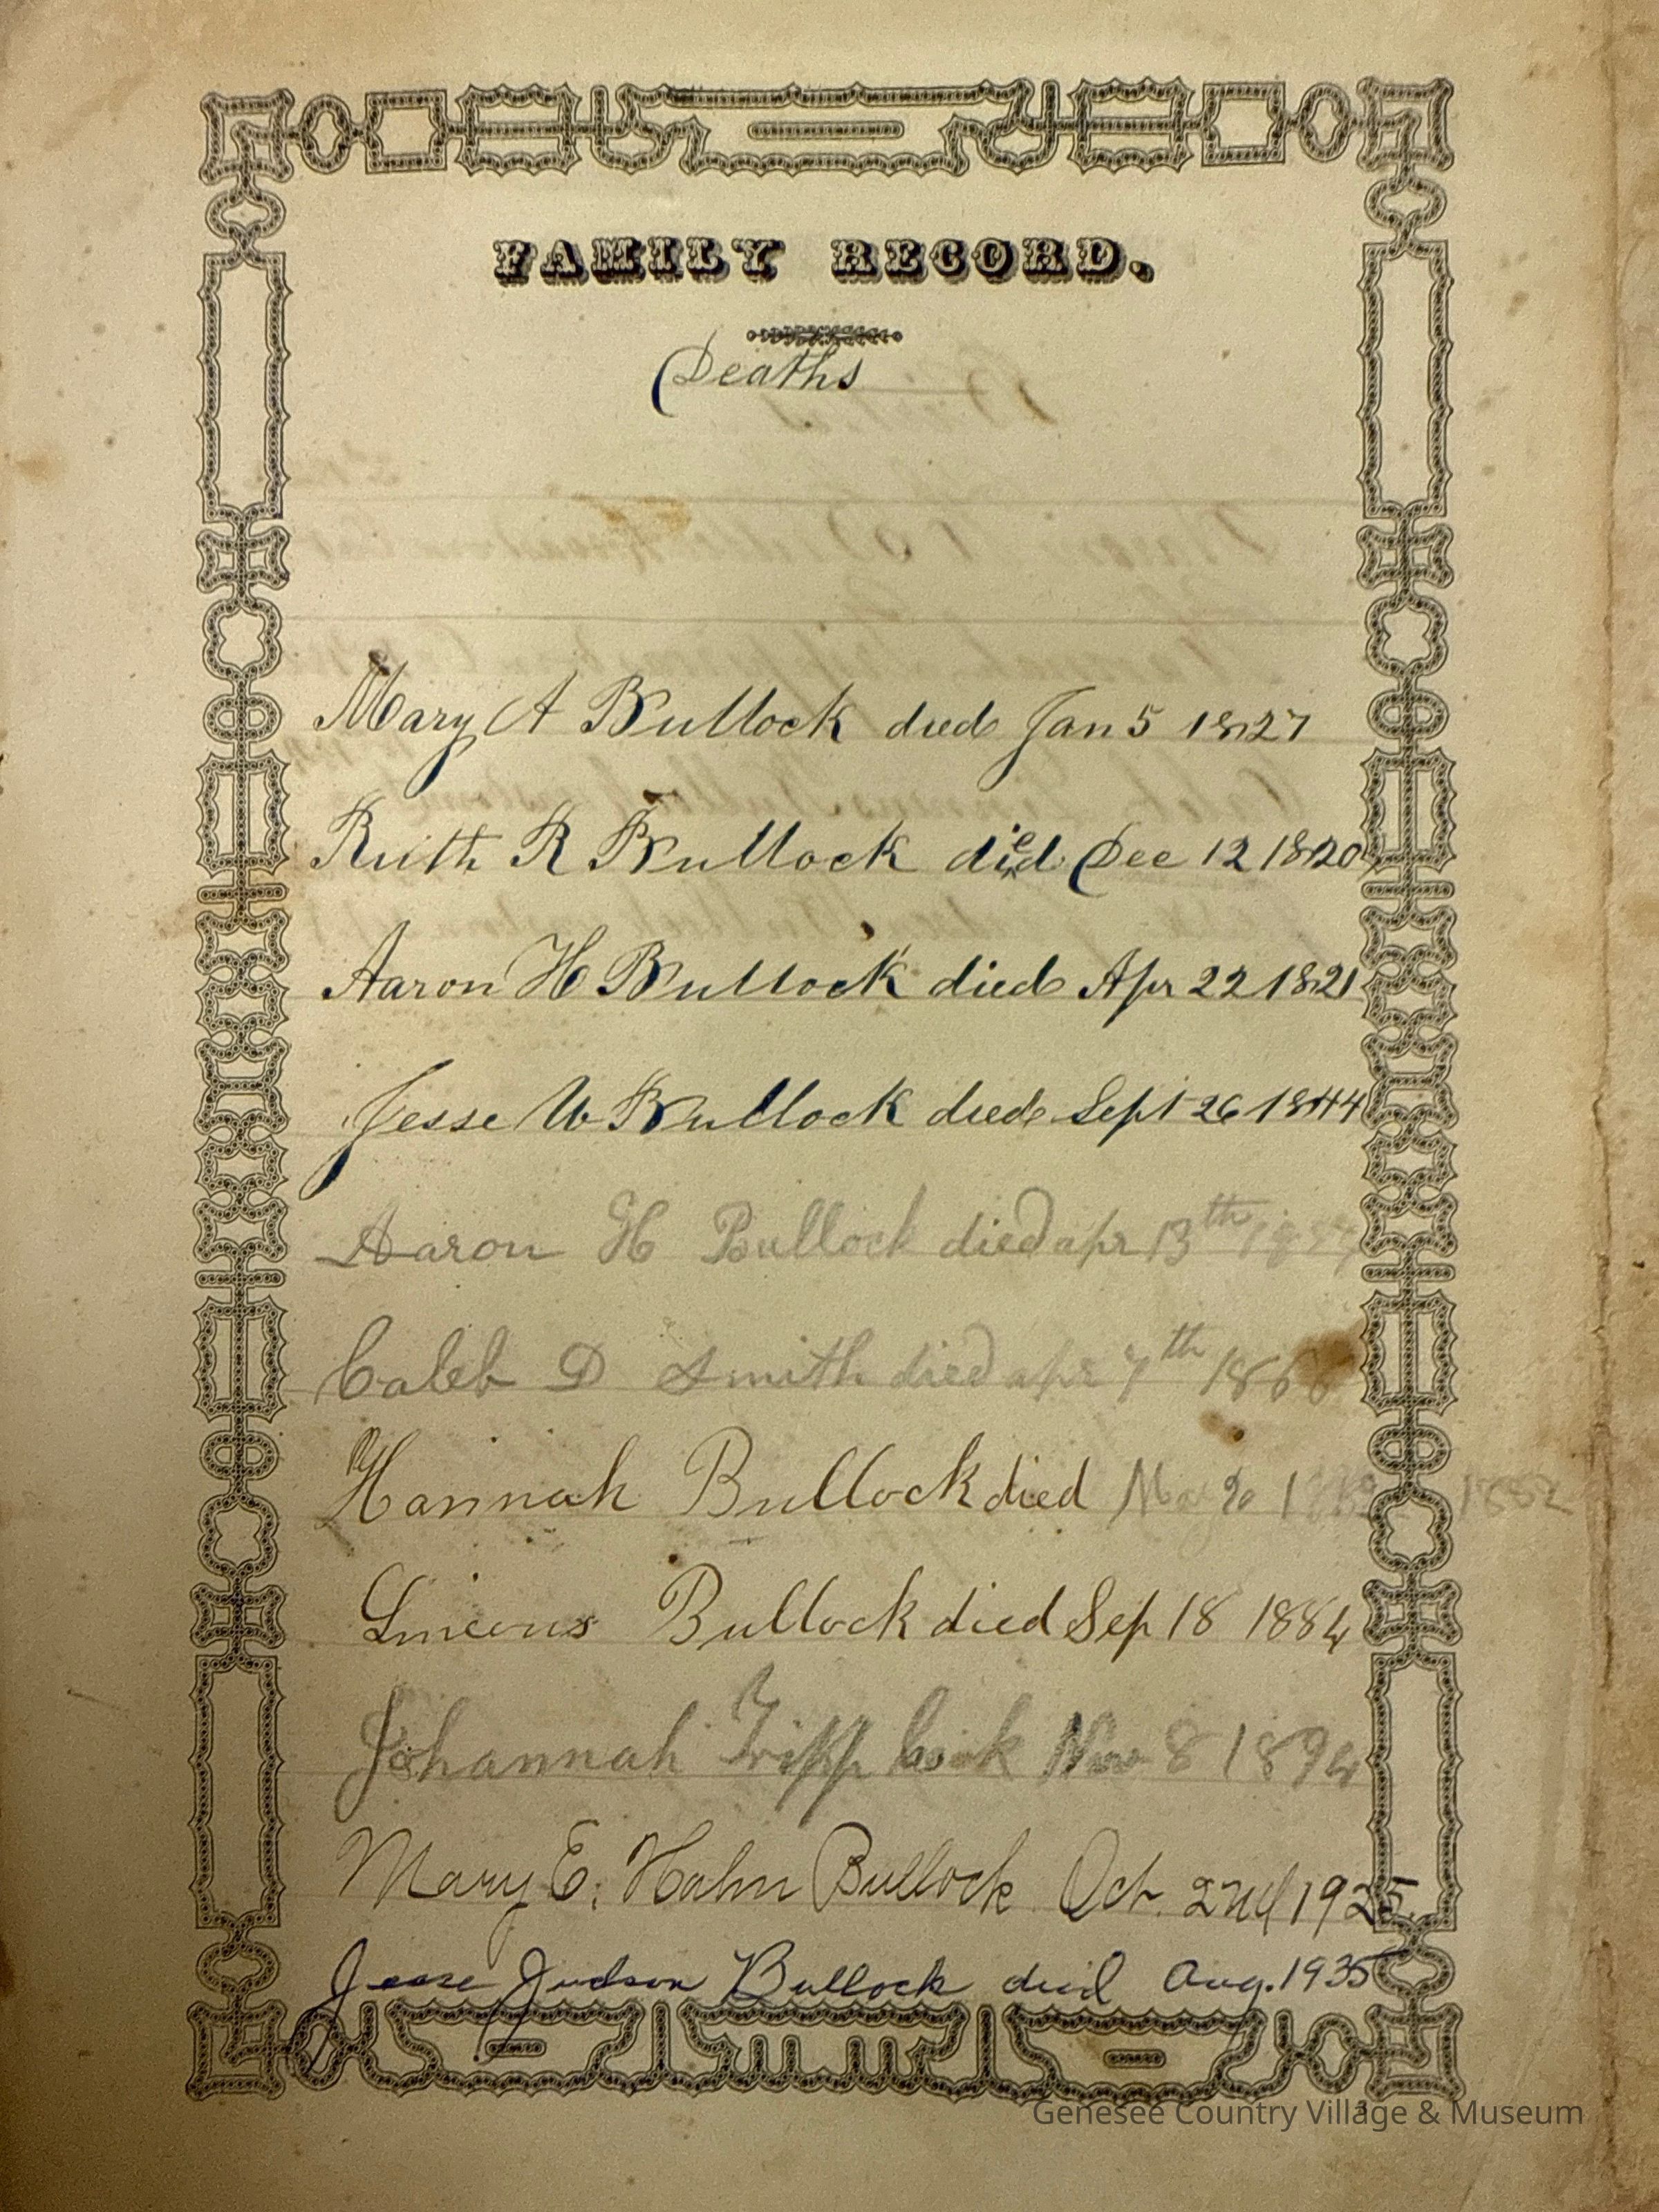 FAMILY RECORD.
Deaths
Mary A Bullock died Jan 5 1827
Ruth R Bullock died Dec 12 1820
Aaron H Bullock died Apr 22 1821
Jesse W Bullock died Sept 26 1844
Aaron H Bullock died apr 13th
Caleb D Smith died apr 7th 186
Hannah Bullock died May 20 1882
Bullock died Sep 18 1884
Johannah Tripp Cook Nov 8 1894
Mary E. Hahn Bullock Oct. 2nd 1925.
Jesse Judson Bullock died Aug. 1935
Genesee Country Village & Museum